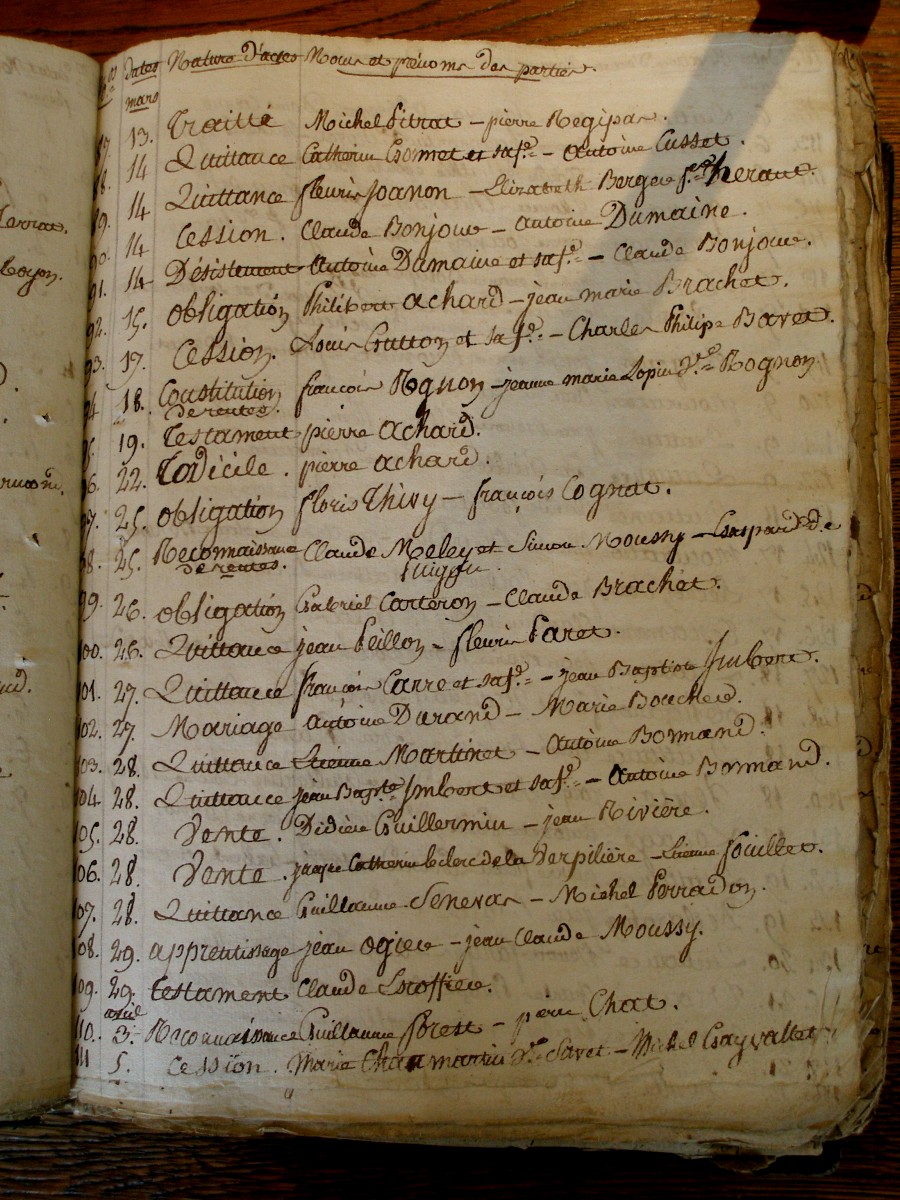 Nos dates Nature d'actes Noms et prénoms des parties.
mars
87 13. Traitté Michel Pitrat - pierre Regipas.
88. 14 Quittance Catherin Gonnet et sa fe. - Antoine Cusset.
89. 14 Quittance fleurie Joanon - Elizabeth Berger fe. heraut.
90. 14 Cession. Claude Bonjour - Antoine Dumaine.
91. 14 Désistement Antoine Dumaine et sa fe. - Claude Bonjour.
92. 15. obligation Philibert achard - jean marie Brachet.
93. 17. Cession. Louis Grutton et sa fe. - Charles Philipe Bavet.
94 18. Constitution françois Rognon - jeanne marie Lopin Ve. Rognon
de rentes.
95. 19. Testament pierre achard.
96. 22. Codicile. pierre achard.
97. 25. obligation floris Thivy - françois Cognat.
98. 25. Reconnaissance Claude Meley et Simon Moussy - Gaspard de
de rentes.
99. 26. obligation Gabriel Carteron - Claude Brachet.
100. 26. Quittance jean Peillon - fleurie Paret.
101. 27. Quittance françois Carre et sa fe. - jean Baptiste Jmbert.
102. 27. Mariage antoine Durand - Marie Boucher.
103. 28. Quittance Etienne Martinet - Antoine Bonnand.
104 28. Quittance jean Bapte. Jmbert et sa fe. - Antoine Bonnand.
105. 28. Vente. Didière Guillermin - jean Rivière.
106. 28. Vente. jaque Catherin leclerc de la Verpilière - Etienne fouillet.
107. 28. Quittance Guillaume Senevas - Michel Perradon.
108. 29. apprentissage jean ogier - jean Claude Moussy.
109. 29. testament Claude Groffier.
avril
110. 3. Reconnaissance Guillaume forest - pierre Chat.
111 5. Cession. Marie Chanmartin Ve. Clavet - Michel Gayvallet